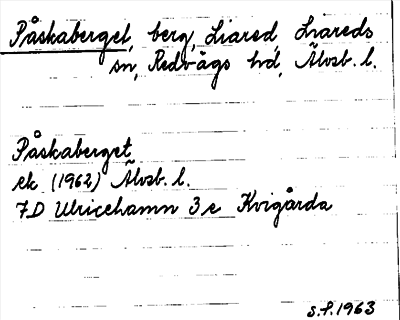 Påskaberget, berg, Liared, Liareds
sn, Redvägs hd, Älvsb. l.
Påskaberget
ek (1962) Älvsb. l.
7D Ulricehamn 3e Kvigårda
s.f. 1963